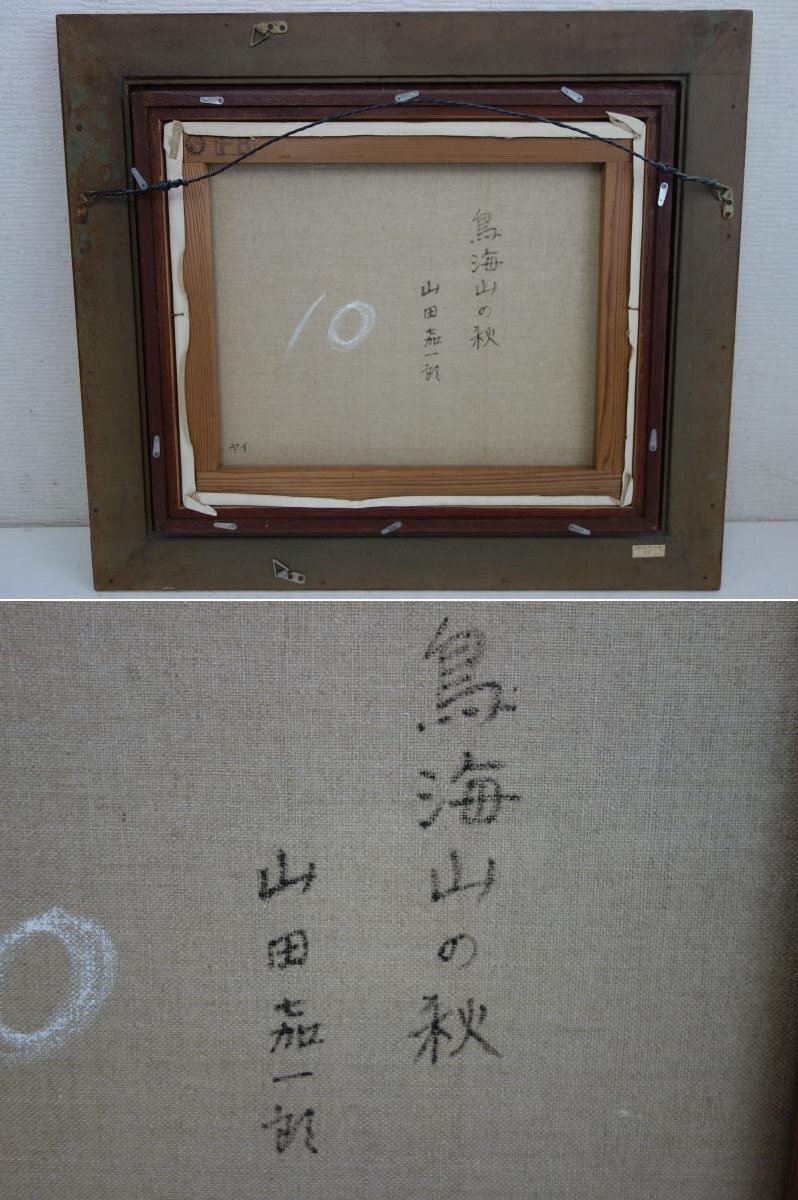 F8
鳥海山の秋
山田嘉一郎
10
ヤイ
鳥海山の秋
山田嘉一郎
0